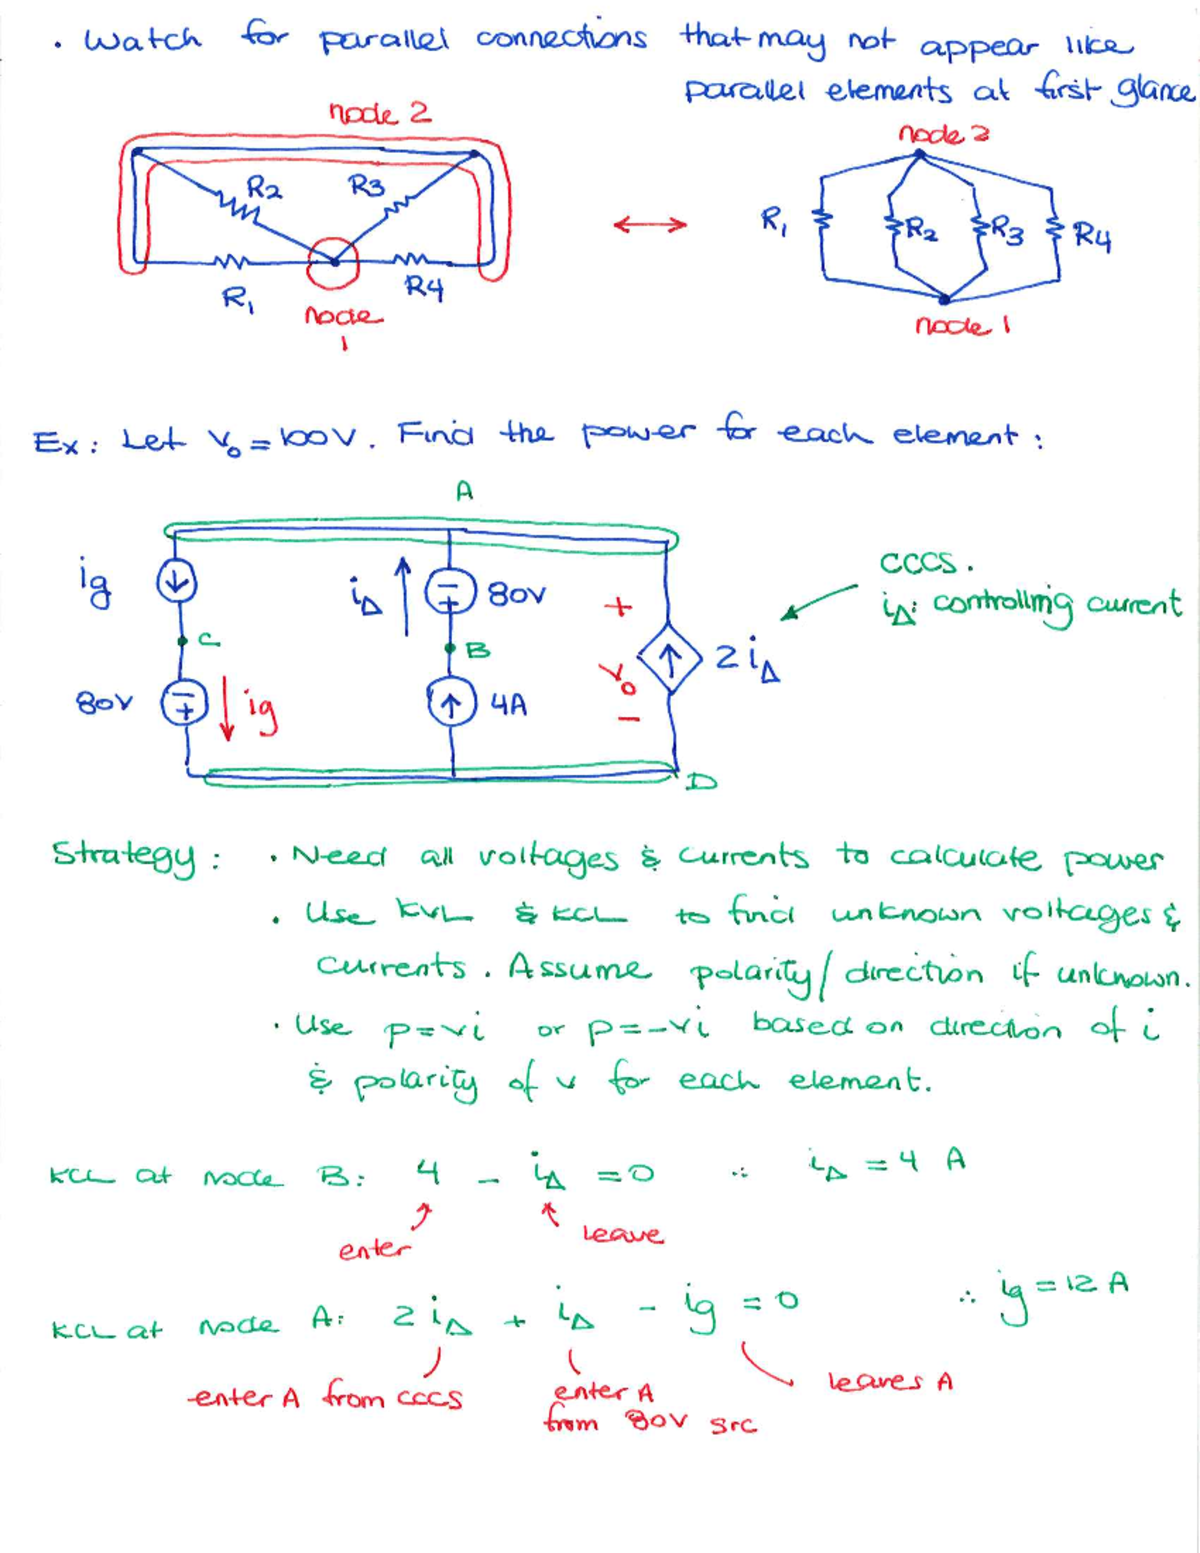 • Watch for parallel connections that may not appear like
parallel elements at first glance
node 2
R2
R3
R1
R4
node
1
node 2
R1
R2
R3
R4
node 1
Ex: Let Vo = 100V. Find the power for each element:
A
ig
iΔ
80V
+
CCCS.
iΔ: controlling current
C
B
Vo
2iΔ
80V
ig
4A
−
D
Strategy: • Need all voltages & currents to calculate power
• Use KVL & KCL to find unknown voltages &
currents. Assume polarity/direction if unknown.
• Use p=vi or p=-vi based on direction of i
& polarity of v for each element.
KCL at node B: 4 - iΔ = 0 ∴ iΔ = 4 A
enter
leave
KCL at node A: 2iΔ + iΔ - ig = 0 ∴ ig = 12 A
enter A from CCCS
enter A
from 80V src
leaves A